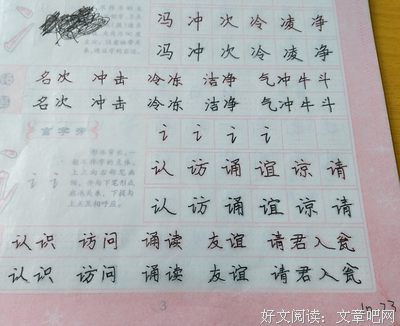 冯 冲 次 冷 凌 净
冯 冲 次 冷 凌 净
名次 冲击 冷冻 洁净 气冲牛斗
名次 冲击 冷冻 洁净 气冲牛斗
言字旁
讠 讠 讠 讠
讠 讠
认 访 诵 谊 谅 请
认 访 诵 谊 谅 请
认识 访问 诵读 友谊 请君入瓮
认识 访问 诵读 友谊 请君入瓮
3
好文阅读：文章吧网